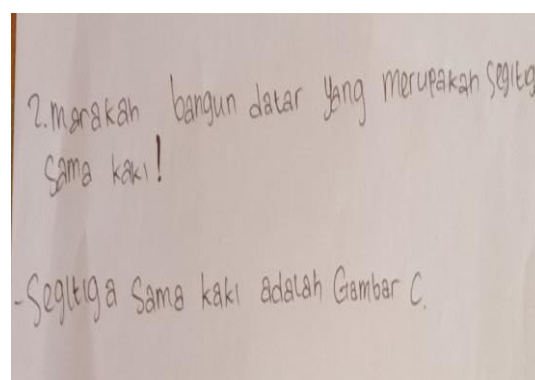 2. marakah bangun datar yang merupakan segitig
sama kaki!
-Segitiga sama kaki adalah Gambar C.